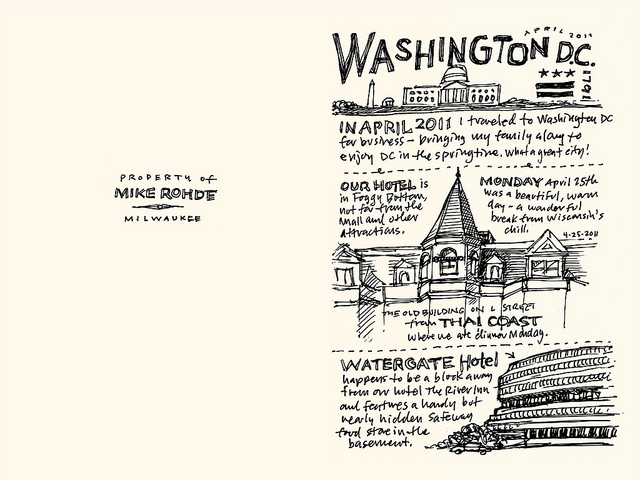 PROPERTY of
MIKE ROHDE
MILWAUKEE
APRIL 2011
WASHINGTON D.C.
1791
IN APRIL 2011 I traveled to Washington DC
for business – bringing my family along to
enjoy DC in the springtime. What a great city!
OUR HOTEL is
in Foggy Bottom,
not far from the
Mall and other
attractions.
MONDAY April 25th
was a beautiful, warm
day – a wonderful
break from Wisconsin's
chill.
4-25-2011
THE OLD BUILDING ON L STREET
from THAI COAST
where we ate dinner Monday.
WATERGATE Hotel
happens to be a block away
from our hotel The River Inn
and features a handy but
nearly hidden Safeway
food store in the
basement.